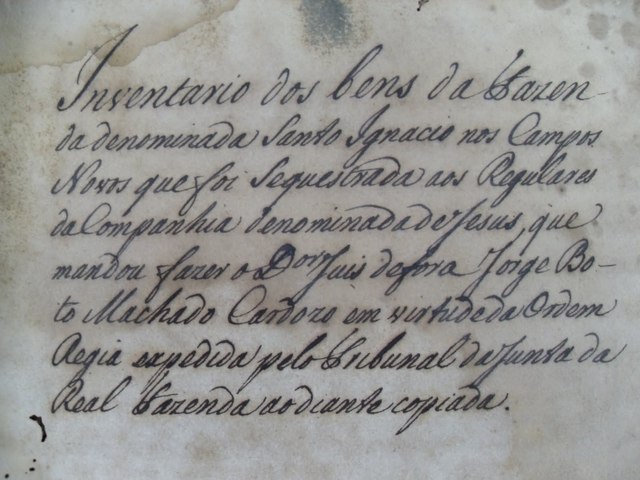 Inventario dos bens da Fazen-
da denominada Santo Ignacio nos Campos
Novos que foi Sequestrada aos Regulares
da Companhia denominada de Jesus, que
mandou fazer o Dor Juis de fora Jorge Bo-
to Machado Cardozo em virtude da Ordem
Regia expedida pelo Tribunal da Junta da
Real Fazenda ao diante copiada.